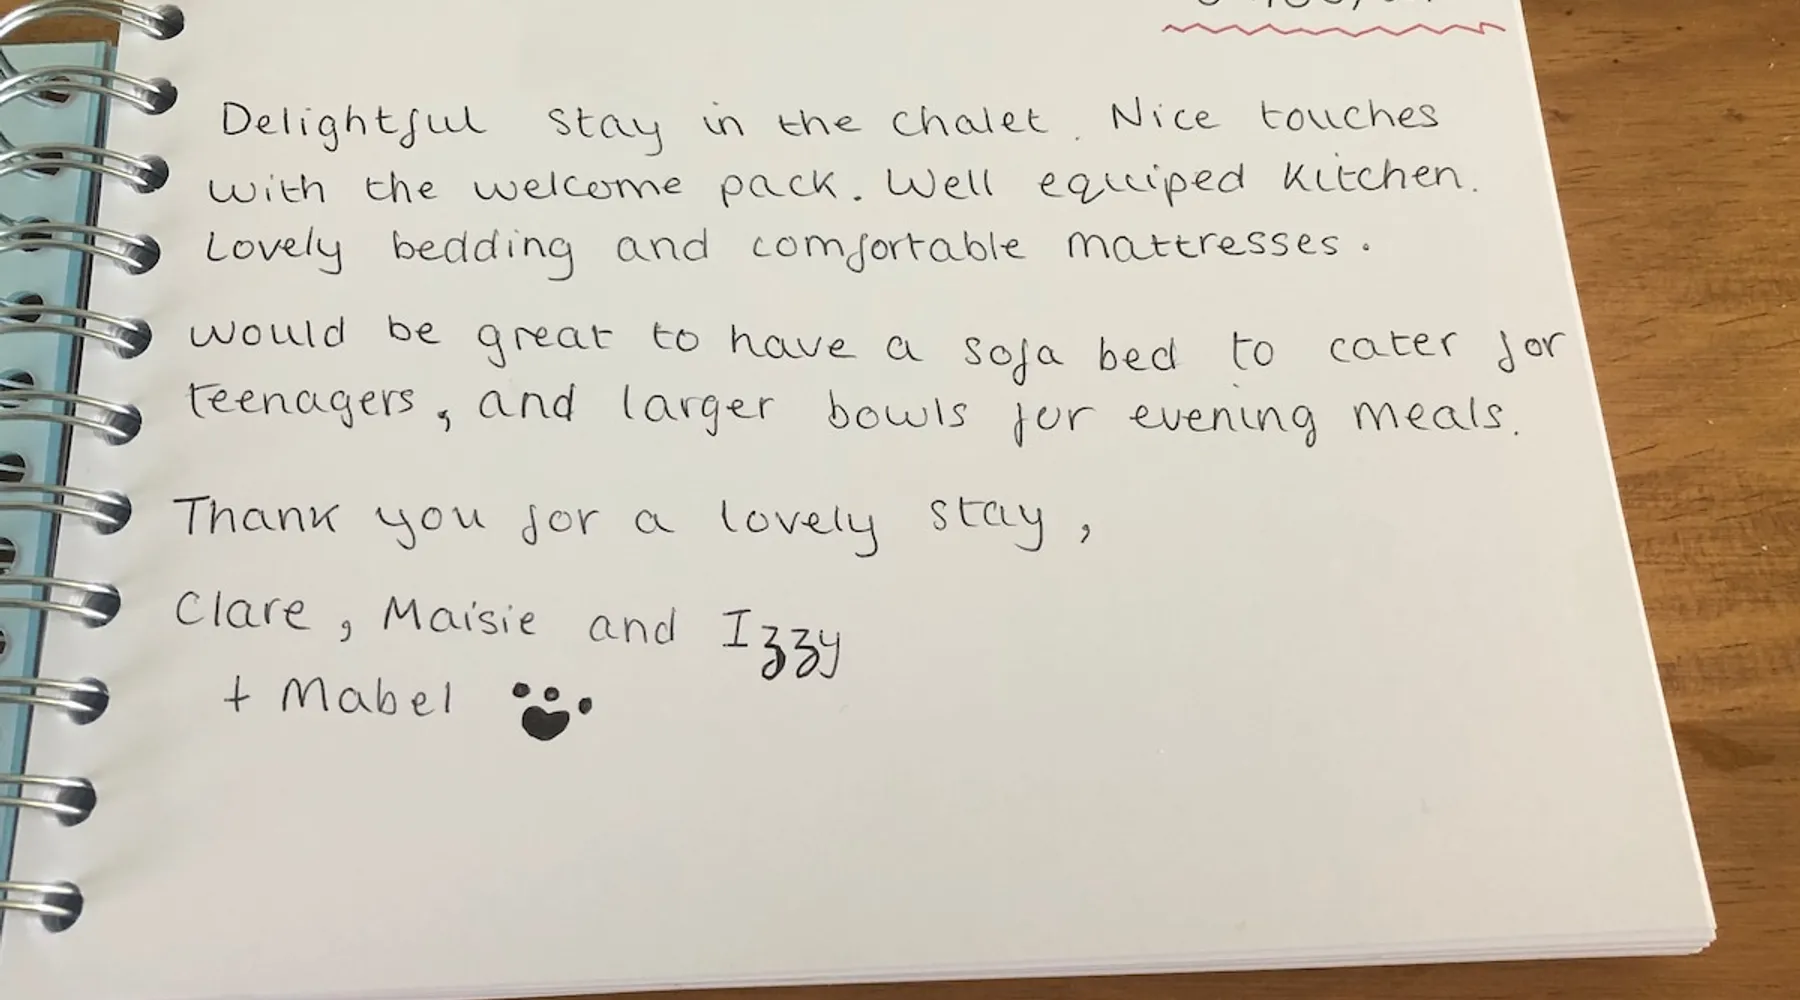 Delightful stay in the chalet. Nice touches
with the welcome pack. Well equiped kitchen.
Lovely bedding and comfortable mattresses.
would be great to have a sofa bed to cater for
teenagers, and larger bowls for evening meals.
Thank you for a lovely stay,
Clare, Maisie and Izzy
+ Mabel